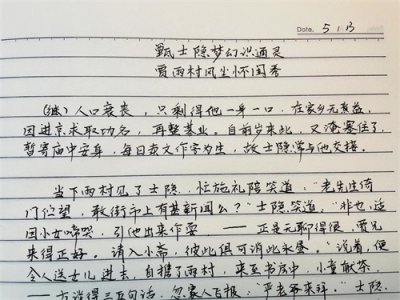 Date. 5/13
甄士隐梦幻识通灵
贾雨村风尘怀闺秀
(继)人口衰丧,只剩得他一身一口,在家乡无益,
因进京求取功名,再整基业。自前岁来此,又淹蹇住了,
暂寄庙中安身,每日卖文作字为生,故士隐常与他交接。
当下雨村见了士隐,忙施礼陪笑道:"老先生倚
门伫望,敢街市上有甚新闻么?"士隐笑道:"非也,适
因小女啼哭,引他出来作耍——正是无聊得很,贾兄
来得正好。请入小斋,彼此俱可消此永昼。"说着,便
令人送女儿进去,自携了雨村,来至书房中,小童献茶。
方谈得三五句话,忽家人飞报:"严老爷来拜。"士隐